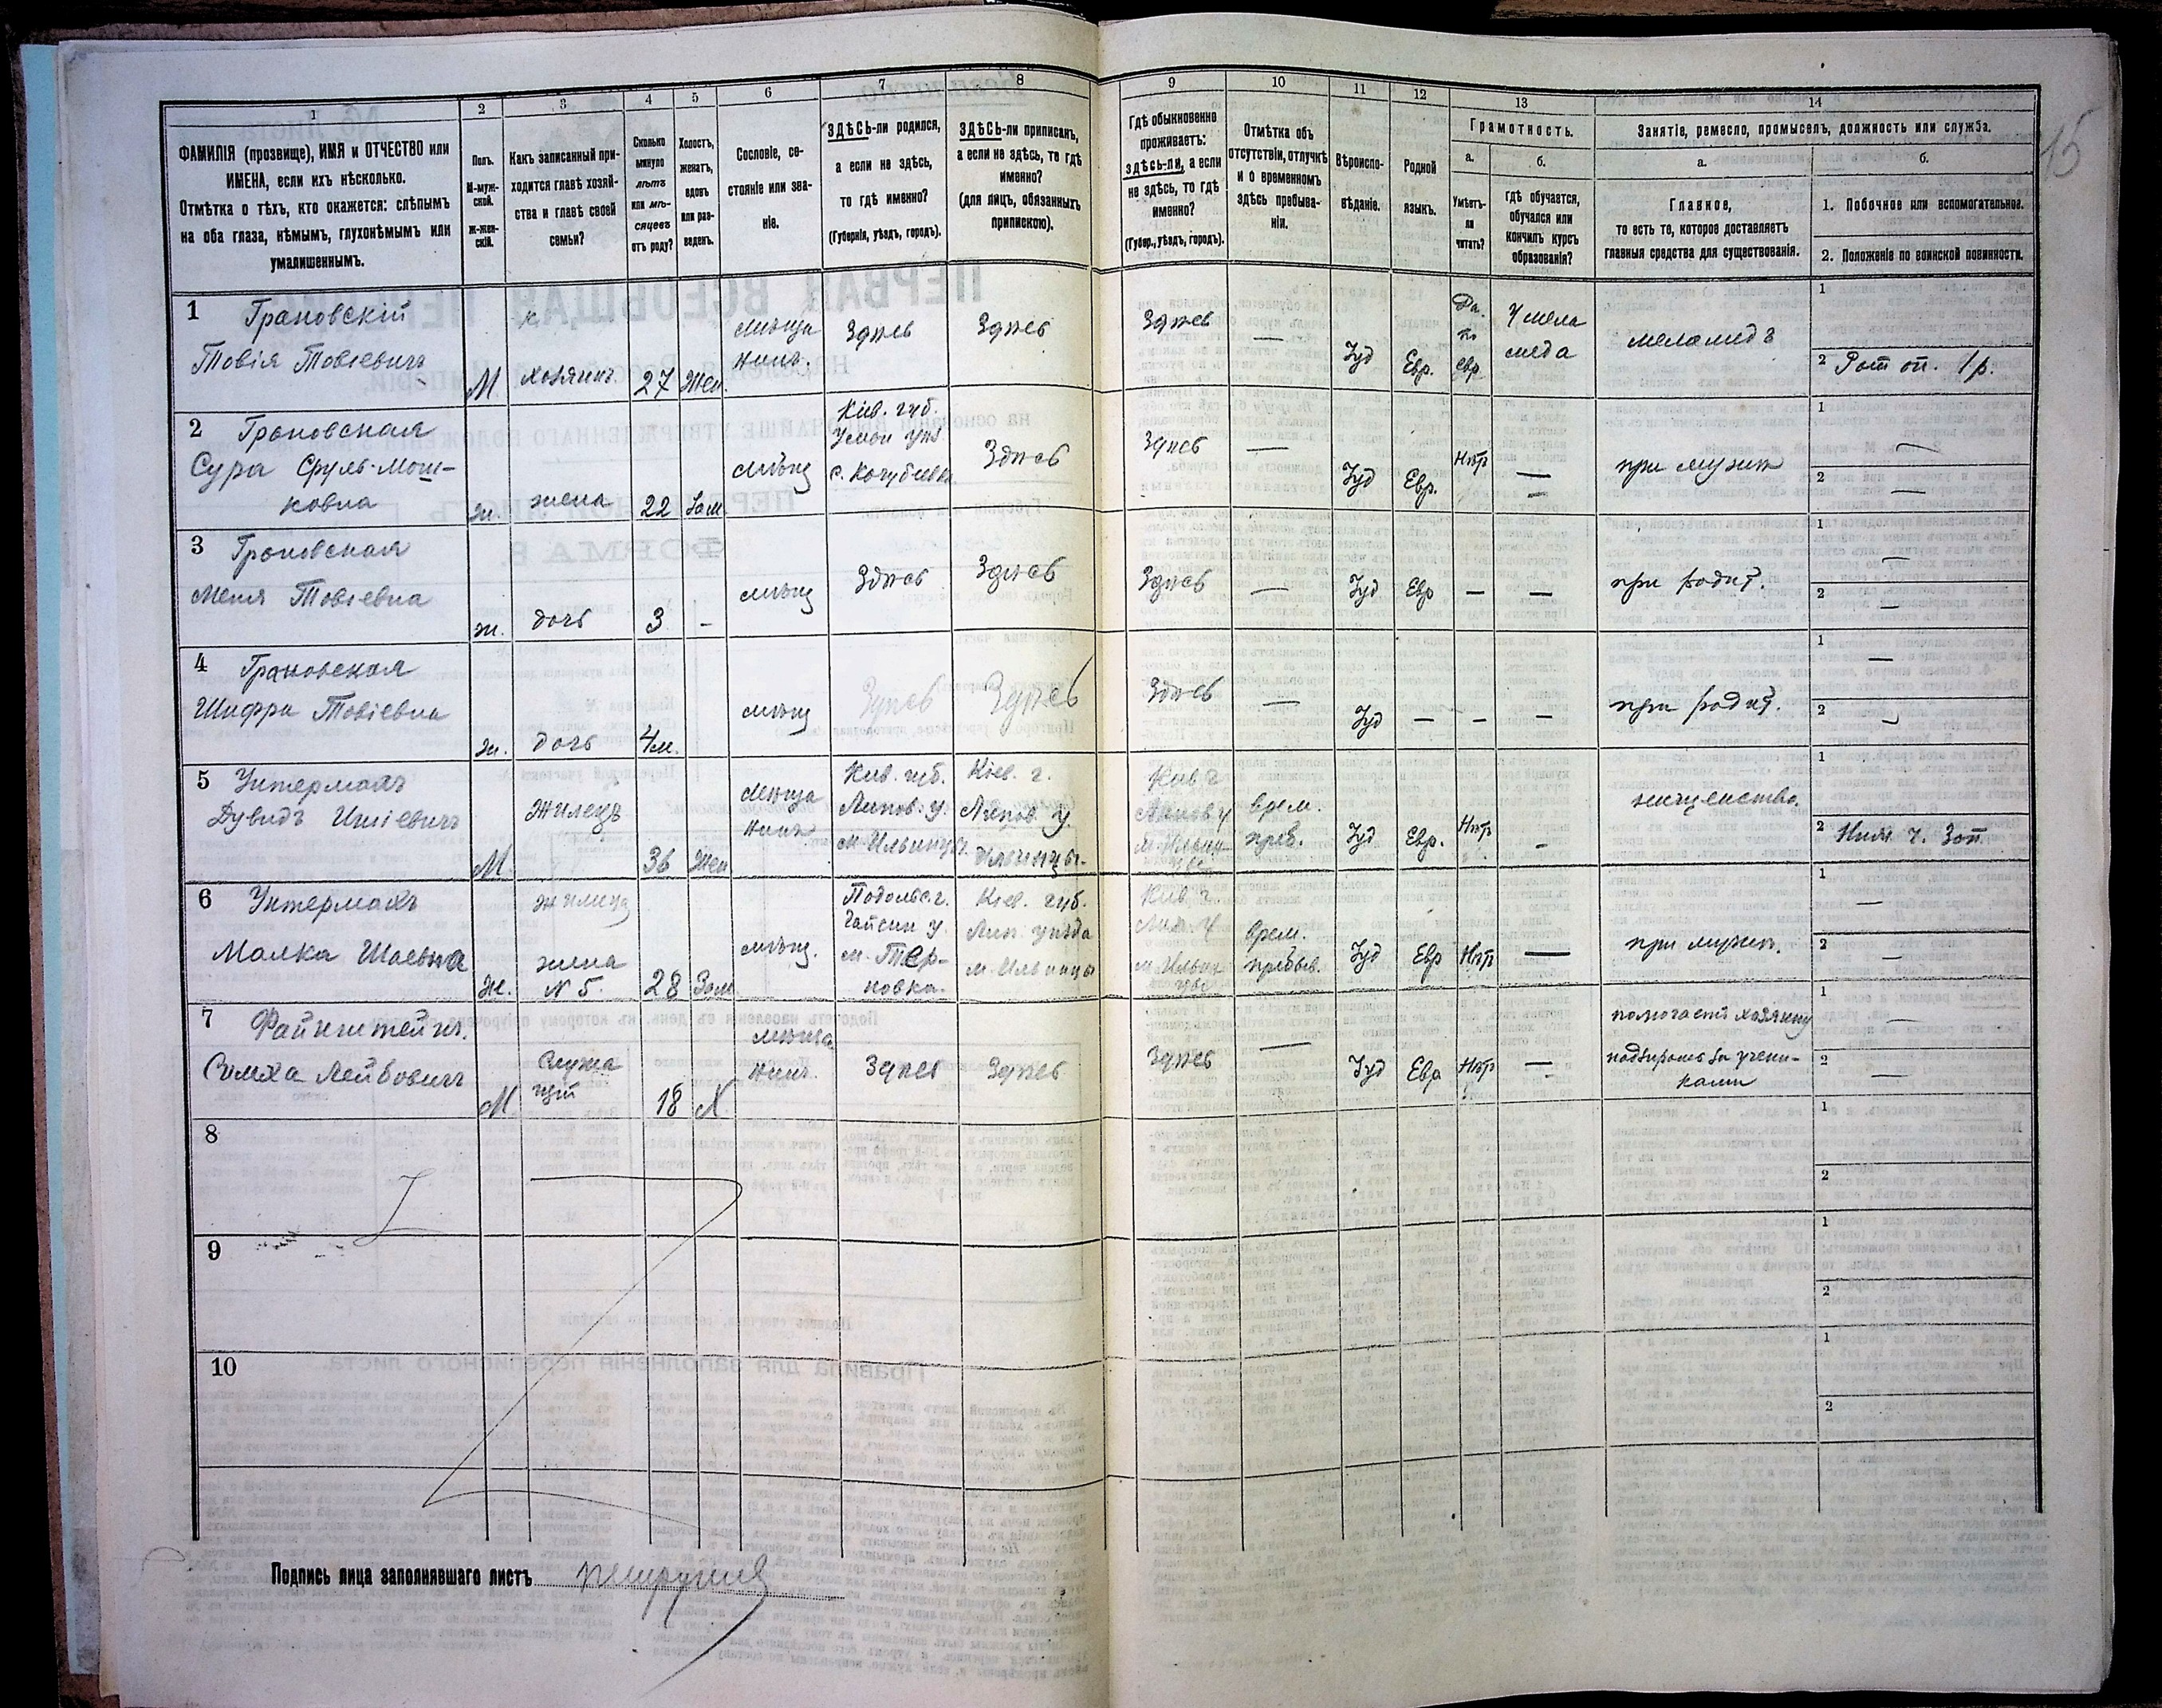 1
2
3
4
5
6
7
8
9
10
11
12
13
14
15
ФАМИЛІЯ (прозвище), ИМЯ и ОТЧЕСТВО или
ИМЕНА, если ихъ нѣсколько.
Отмѣтка о тѣхъ, кто окажется: слѣпымъ
на оба глаза, нѣмымъ, глухонѣмымъ или
умалишеннымъ.
Полъ.
М-муж-
ской.
ж-жен-
скій.
Какъ записанный при-
ходится главѣ хозяй-
ства и главѣ своей
семьи?
Сколько
минуло
лѣтъ
или мѣ-
сяцевъ
отъ роду?
Холостъ,
женатъ,
вдовъ
или раз-
веденъ.
Сословіе, со-
стояніе или зва-
ніе.
ЗДѢСЬ-ли родился,
а если не здѣсь,
то гдѣ именно?
(Губернія, уѣздъ, городъ).
ЗДѢСЬ-ли приписанъ,
а если не здѣсь, то гдѣ
именно?
(для лицъ, обязанныхъ
припискою).
Гдѣ обыкновенно
проживаетъ:
здѣсь-ли, а если
не здѣсь, то гдѣ
именно?
(Губер., уѣздъ, городъ).
Отмѣтка объ
отсутствіи, отлучкѣ
и о временномъ
здѣсь пребыва-
ніи.
Вѣроиспо-
вѣданіе.
Родной
языкъ.
Грамотность.
а.
Умѣетъ-
ли
читать?
б.
гдѣ обучается,
обучался или
кончилъ курсъ
образованія?
Занятіе, ремесло, промыселъ, должность или служба.
а.
Главное,
то есть то, которое доставляетъ
главныя средства для существованія.
б.
1. Побочное или вспомогательное.
2. Положеніе по воинской повинности.
1 Грановскій
Товія Товіевичъ
М
хозяинъ
27
Жен.
мѣща
нинъ.
Здѣсь
Здѣсь
Здѣсь
—
Іуд
Евр.
Да.
по
евр.
У мела
меда
меламедъ
1
2 Рат оп. 1 р.
2 Грановская
Сура Сруль-Мош-
ковна
ж.
жена
22
Зам
мѣщ
Кіев. губ.
Уман уѣз.
Здѣсь
Здѣсь
—
Іуд
Евр.
Нѣтъ
—
при мужѣ
1 —
2 —
3 Грановская
Меня Товіевна
ж.
дочь
3
-
мѣщ
Здѣсь
Здѣсь
Здѣсь
—
Іуд
Евр
—
—
при родит.
1 —
2 —
4 Грановская
Шифра Товіевна
ж.
дочь
4м.
мѣщ
Здѣсь
Здѣсь
Здѣсь
—
Іуд
—
—
—
при родит.
1 —
2 —
5 Унтермахъ
Дувидъ
М
жилецъ
36
Жен
мѣща
нинъ
Кіев. губ.
Липов. у.
м. Ильинцы.
Кіев. г.
Липов. у.
Ильинцы.
Кіев г
Липов у
м. Ильин
цы
врем.
преб.
Іуд
Евр.
Нѣтъ
-
нищенство.
1
6 Унтермахъ
Малка Шаевна
ж.
жилица
жена
N 5.
28
Зам
мѣщ.
Подольс. г.
Гайсин у.
м. Тер-
новка.
Кіев. губ.
Лип. уѣзда
м. Ильинцы
Кіев г.
Лип. у
м. Ильин
цы
врем.
пребыв.
Іуд
Евр
Нѣтъ
—
при мужѣ.
1 —
2 —
7 Файнштейнъ.
Симха Лейбовичъ
М
Служа
щій
18
Х
мѣща
нинъ.
Здѣсь
Здѣсь
Здѣсь
—
Іуд
Евр
Нѣтъ
—
помогаетъ хозяину
надзираетъ за учени-
ками
1 —
2 —
8
1
2
9
1
2
10
1
2
Подпись лица заполнявшаго листъ